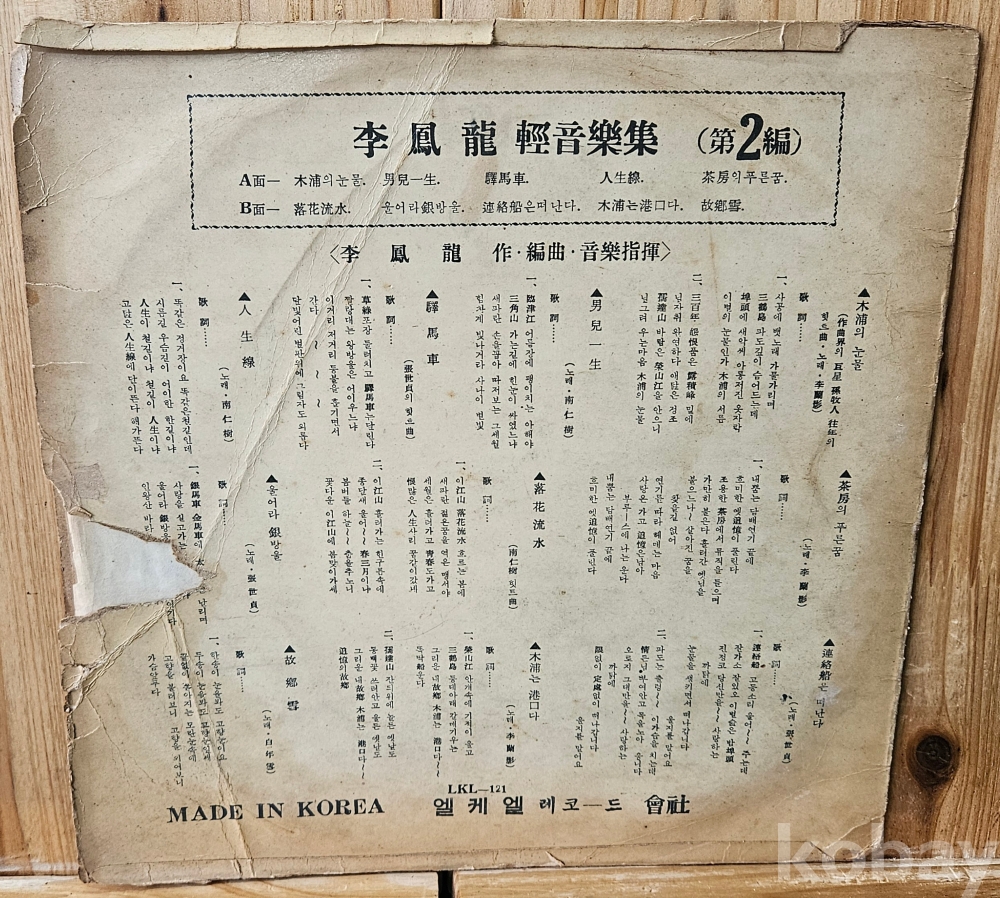 李鳳龍 輕音樂集 (第2編)
A面— 木浦의눈물. 男兒一生. 驛馬車. 人生線. 茶房의푸른꿈.
B面— 落花流水. 울어라銀방울. 連絡船은떠난다. 木浦는港口다. 故鄕雪.
〈李鳳龍 作·編曲·音樂指揮〉
▲木浦의 눈물
(作曲界의 巨星 孫牧人 往年의
힛트曲·노래·李蘭影)
歌詞……
一、사공에 뱃노래 가물가물거리며
三鶴島 파도깊이 숨어드는데
埠頭에 새악씨 아롱저진 옷자락
이별의 눈물인가 木浦의 서름
二、三百年 怨恨품은 露積峰 밑에
님자취 완연하다 애닯은 정조
儒達山 바람은 榮山江을 안으니
님그려 우는마음 木浦의 눈물
▲男兒一生
(노래·南仁樹)
歌詞……
一、臨津江
三角山 가는길에 흰눈이 싸였느냐
힘차게 빛나거라 사나이 별빛
▲驛馬車
(張世貞의 힛트曲)
歌詞……
一、草綠포장 둘려치고 驛馬車는달린다
짤랑대는 왕방울은
이거리 저거리 등불을 흘기면서
간다
달빛어린 벌판위에 그림자도 외롭다
▲人生線
(노래·南仁樹)
歌詞……
一、똑같은 정거장이요 똑같은철길인데
시름길 우슴길이 어이한 한길이냐
人生이 철길이냐 철길이 人生이냐
고닲은 人生線에 달이뜬다 해가뜬다
▲茶房의 푸른꿈
(노래·李蘭影)
歌詞……
一、내뿜는 담배연기 끝에
흐미한 옛追憶이 풀린다
조용한 茶房에서 뮤직을 들으며
가만히 부른다 흘러간 옛님을
부르느나~ 살아진 꿈을
찾을길 없어
연기를 따라 헤매는 마음
사랑은 가고 追憶은남아
부루—스에 나는 운다
내뿜는 담배연기 끝에
흐미한 옛追憶이 풀린다
▲落花流水
(南仁樹 힛트曲)
歌詞……
一、이江山 落花流水 흐르는봄에
새파란 젊은꿈을 엮은 맹서야
세월은 흘러가고 靑春도가고
恨많은 人生사리 꿈같이갔네
二、이江山 흘러가는 흰구름속에
종달새 울어~~ 春三月이냐
봄버들 하늘~~ 춤을추노니
꽃다운 이江山에 봄맞이가세
▲울어라 銀방울
(노래·張世貞)
歌詞……
一、銀馬車 金馬車에
사랑을 실고가는
울어라 銀방울
인왕산 바라
▲連絡船은 떠난다
(노래·張世貞)
歌詞……
一、連絡船 고동소리 울어~~ 주는데
잘가소 잘있오 이별슲은 밤埠頭
진정코 당신만을~~ 사랑하는
까닭에
눈물을 생키면서 떠나갑니다
울지를 말어요
二、파도는 출렁~~ 이가슴을 치는데
情든님 부여안고 목을놓아 웁니다
오로지 그대만을~~ 사랑하는
까닭에
限없이 定處없이 떠나갑니다
울지를 말어요
▲木浦는 港口다
(노래·李蘭影)
歌詞……
一、榮山江 안개속에 기적이 울고
三鶴島 등대아래 갈매기우는
그리운 내故鄕 木浦는 港口다~~
똑딱船 운다
二、儒達山 잔듸위에 놀든 옛날도
동백꽃 쓰러안고 울든 옛날도
그리운 내故鄕 木浦는 港口다~~
追憶의故鄕
▲故鄕雪
(노래·白年雪)
歌詞……
一、한송이 눈을봐도 고향눈이요
두송이 눈을봐도 고향눈일세
끝없이 쏟아지는 모란눈속에
고향을 불러보니 고향을 불러보니
가슴앞푸다
LKL—121
MADE IN KOREA 엘케엘 레코—드 會社
kobay